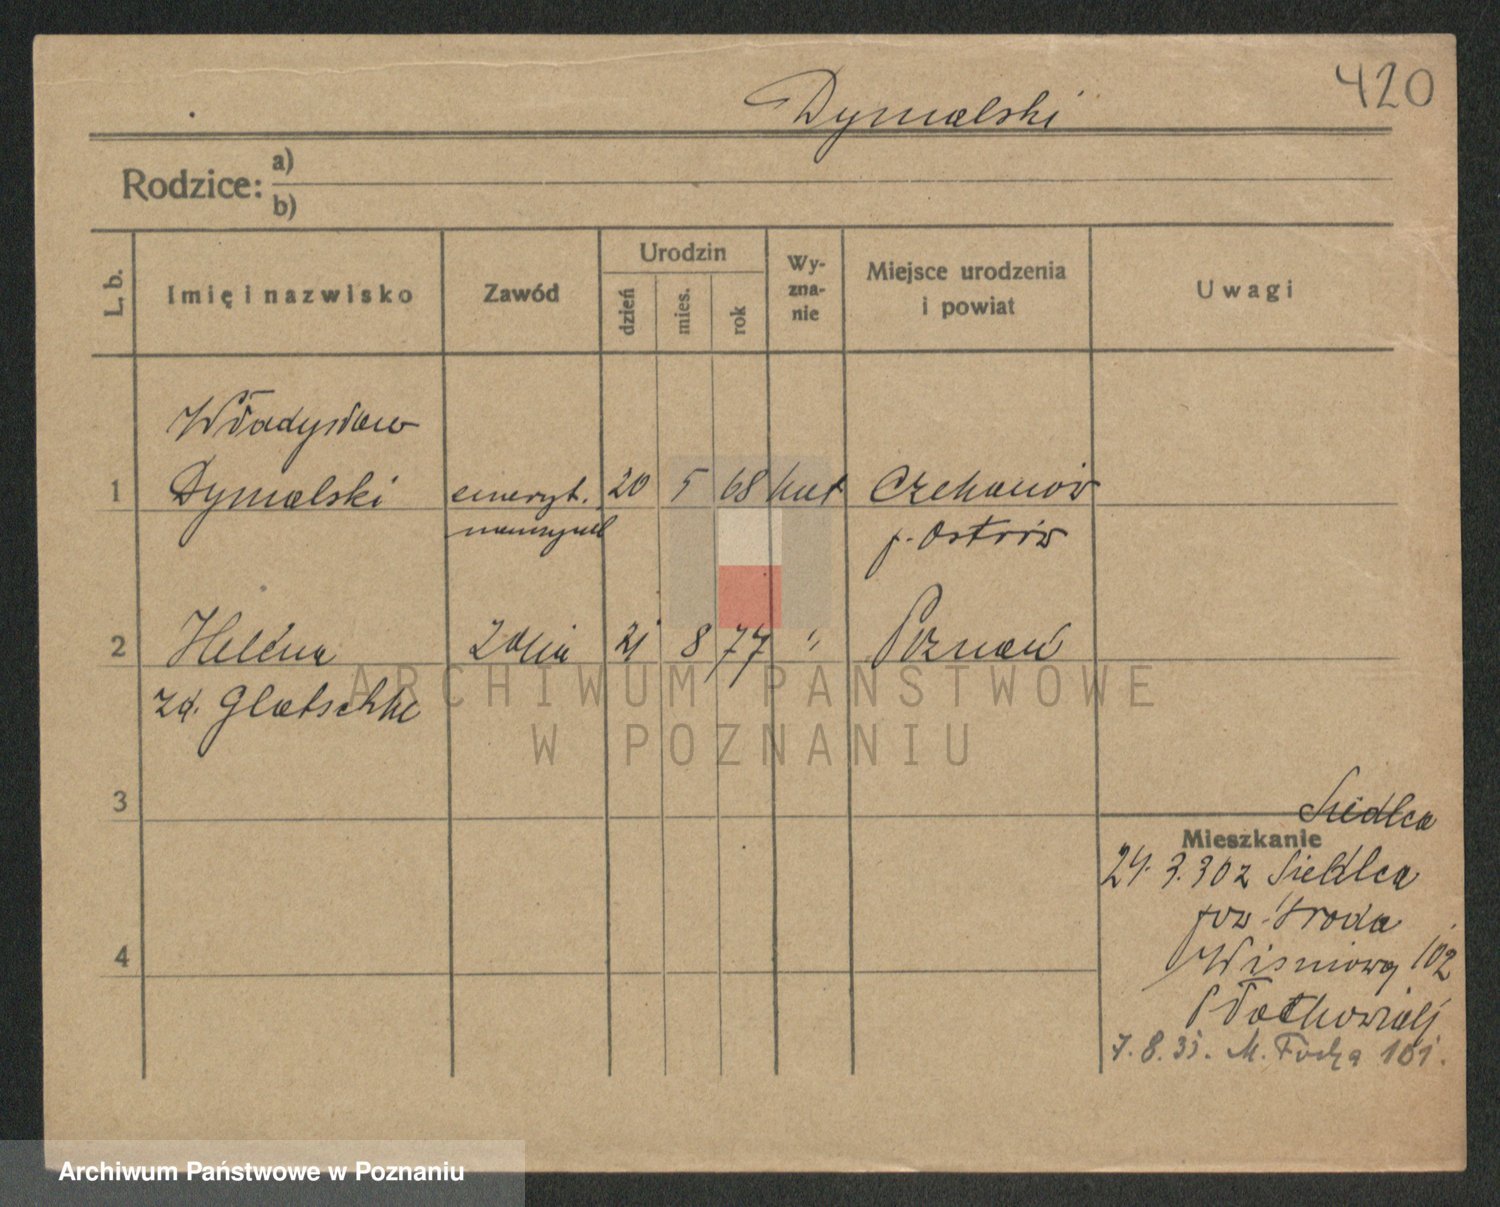 420
Dymalski
Rodzice:
a)
b)
L. b.
Imię i nazwisko
Zawód
Urodzin
dzień
mies.
rok
Wy-
zna-
nie
Miejsce urodzenia
i powiat
Uwagi
Władysław
1 Dymalski emeryt. 20 5 68 kat Czekanów
p. Ostrów
2 Helena żona 21 8 77 " Poznań
zd. Glatschke
3
Siedlca
Mieszkanie
24. 3. 30 z Siedlca
pow. Środa
4
Wiśniowa 102
7. 8. 35. M. Focha 101.
ARCHIWUM PAŃSTWOWE
W POZNANIU
Archiwum Państwowe w Poznaniu